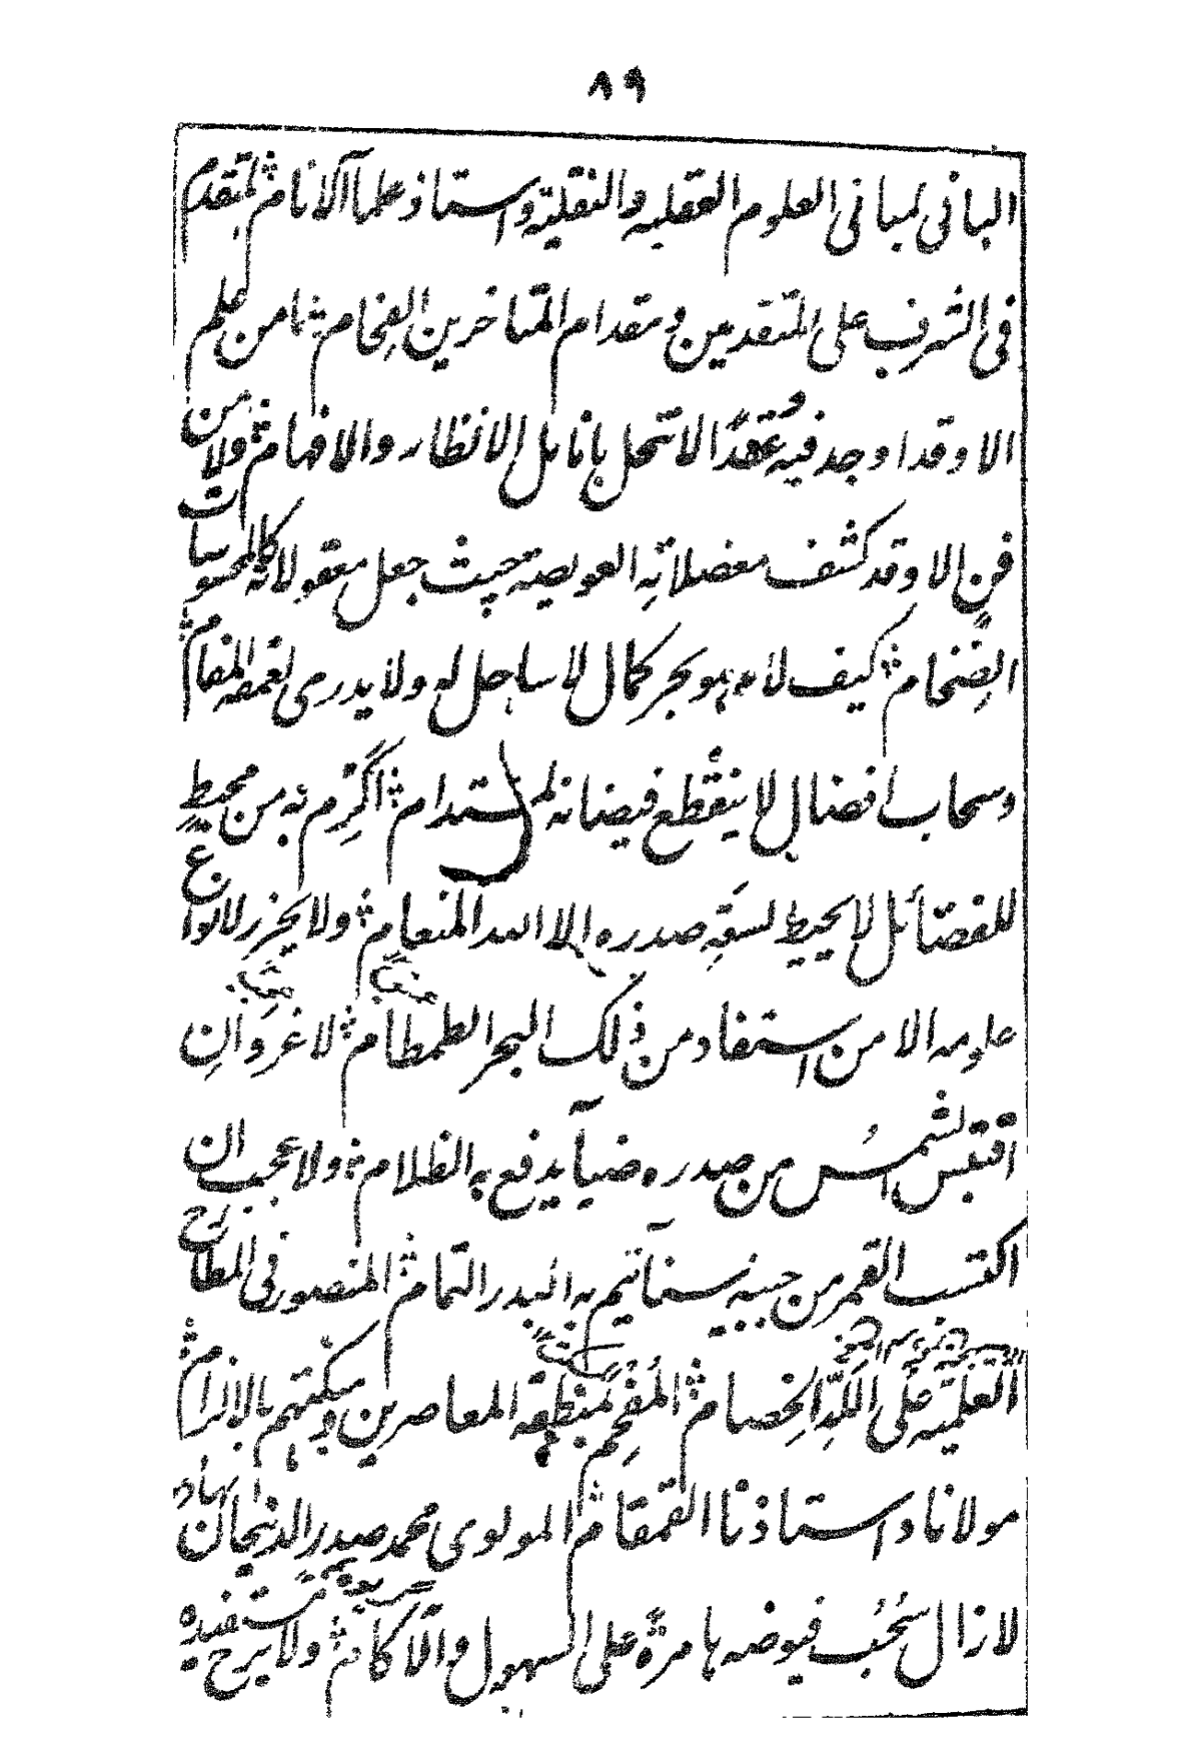 ٨٩
البانى لمبانى العلوم العقليه والنقلية واستاذ علماء الانام المتقدم
فى الشرف على المتقدمين ومقدام المتاخرين الفخام ما من علم
الا وقد اوجد فيه عُقَدًا لا تنحل بانامل الانظار والافهام ولا من
فن الا وقد كشف معضلاتِه العويصة حيث جعل معقولاته كالمحسوسات
الضخام كيف لا وهو بحر كمال لا ساحل له ولا يدرى لعمقه المقام
وسحاب افضال لا ينقطع فيضانه المستدام اكرِم به من محيطٍ
للفضائل لا يحيط لسعَةِ صدره الا الله المنعام ولا يحرز لانواع
علومه الا من استفاد من ذلك البحر الطمطام لا غرو ان
اقتبس الشمسُ من صدره ضياءً يدفع به الظلام ولا عجب ان
اكتسب القمر من جبينه سناءً يتم به البدر التمام المنصور فى المطارح
العلمية على الَدِّ الخصام المُفحِم لمنطقة المعاصرين ومسكتهم بالالزام
مولانا واستاذنا القمقام المولوى محمد صدر الدينخان بهادر
لا زال سُحُب فيوضه هامرة على السهول والآكام ولا يبرح مستفيده